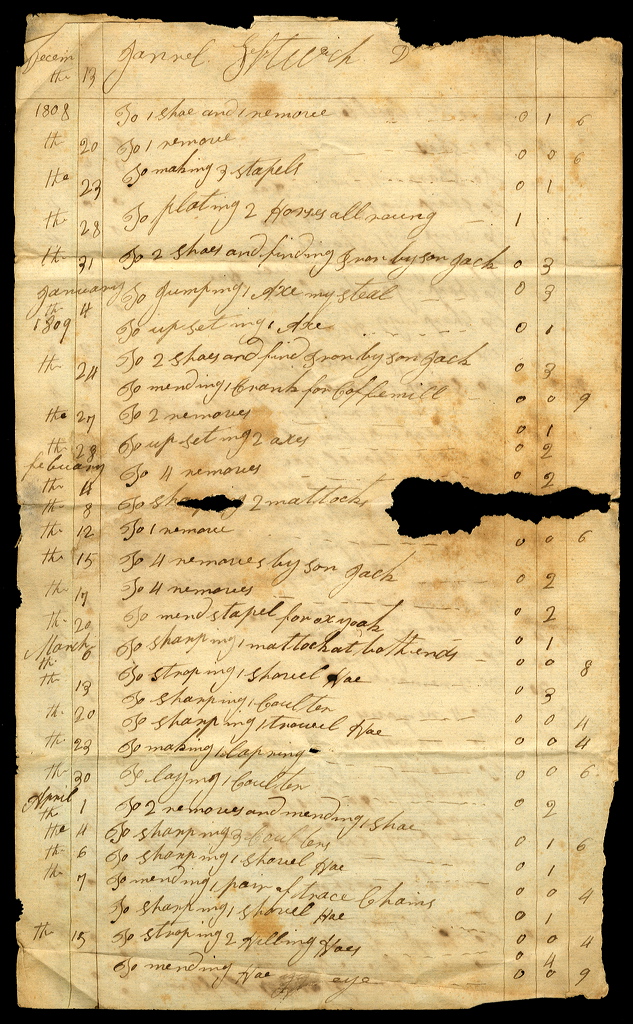 Decem
the 13 Jannel D
1808 To 1 shoe and 1 remove 0 1 6
th 20 To 1 remove 0 0 6
the 23 To making 3 stapels 0 1
th 28 To plating 2 Horses all roung 1
th 31 To 2 Shoes and finding Iron by son Jack 0 3
January th 4 To Jumping 1 Axe my steal 0 3
1809 To upseting 1 Axe 0 1
th 24 To 2 shoes and find Iron by son Jack 0 3
To mending 1 Crank for Coffemill 0 0 9
the 27 To 2 removes 0 1
th 28 To upseting 2 axes 0 2
febuary th 4 To 4 removes 0 2
th 8 To 2 mattocks
th 12 To 1 remove 0 0 6
th 15 To 4 removes by son Jack 0 2
th 17 To 4 removes 0 2
th 20 To mend stapel for ox yoak 0 1
March th 6 To sharping 1 mattock at both ends 0 0 8
th 13 To stroping 1 shovel Hoe 0 3
To sharping 1 Coulter 0 0 4
th 20 To sharping 1 trowel Hoe 0 0 4
th 23 To making 1 lapring 0 0 6
th 30 To laying 1 Coulter 0 2
April th 1 To 2 removes and mending 1 shoe 0 1 6
the 4 To sharping 3 Coulters 0 1
th 6 To sharping 1 shovel Hoe 0 0 4
th 7 To mending 1 pair of trace Chains 0 1
To sharping 1 shovel Hoe 0 0 4
th 15 To stroping 2 Hilling Hoes 0 4
To mending Hoe eye 0 0 9